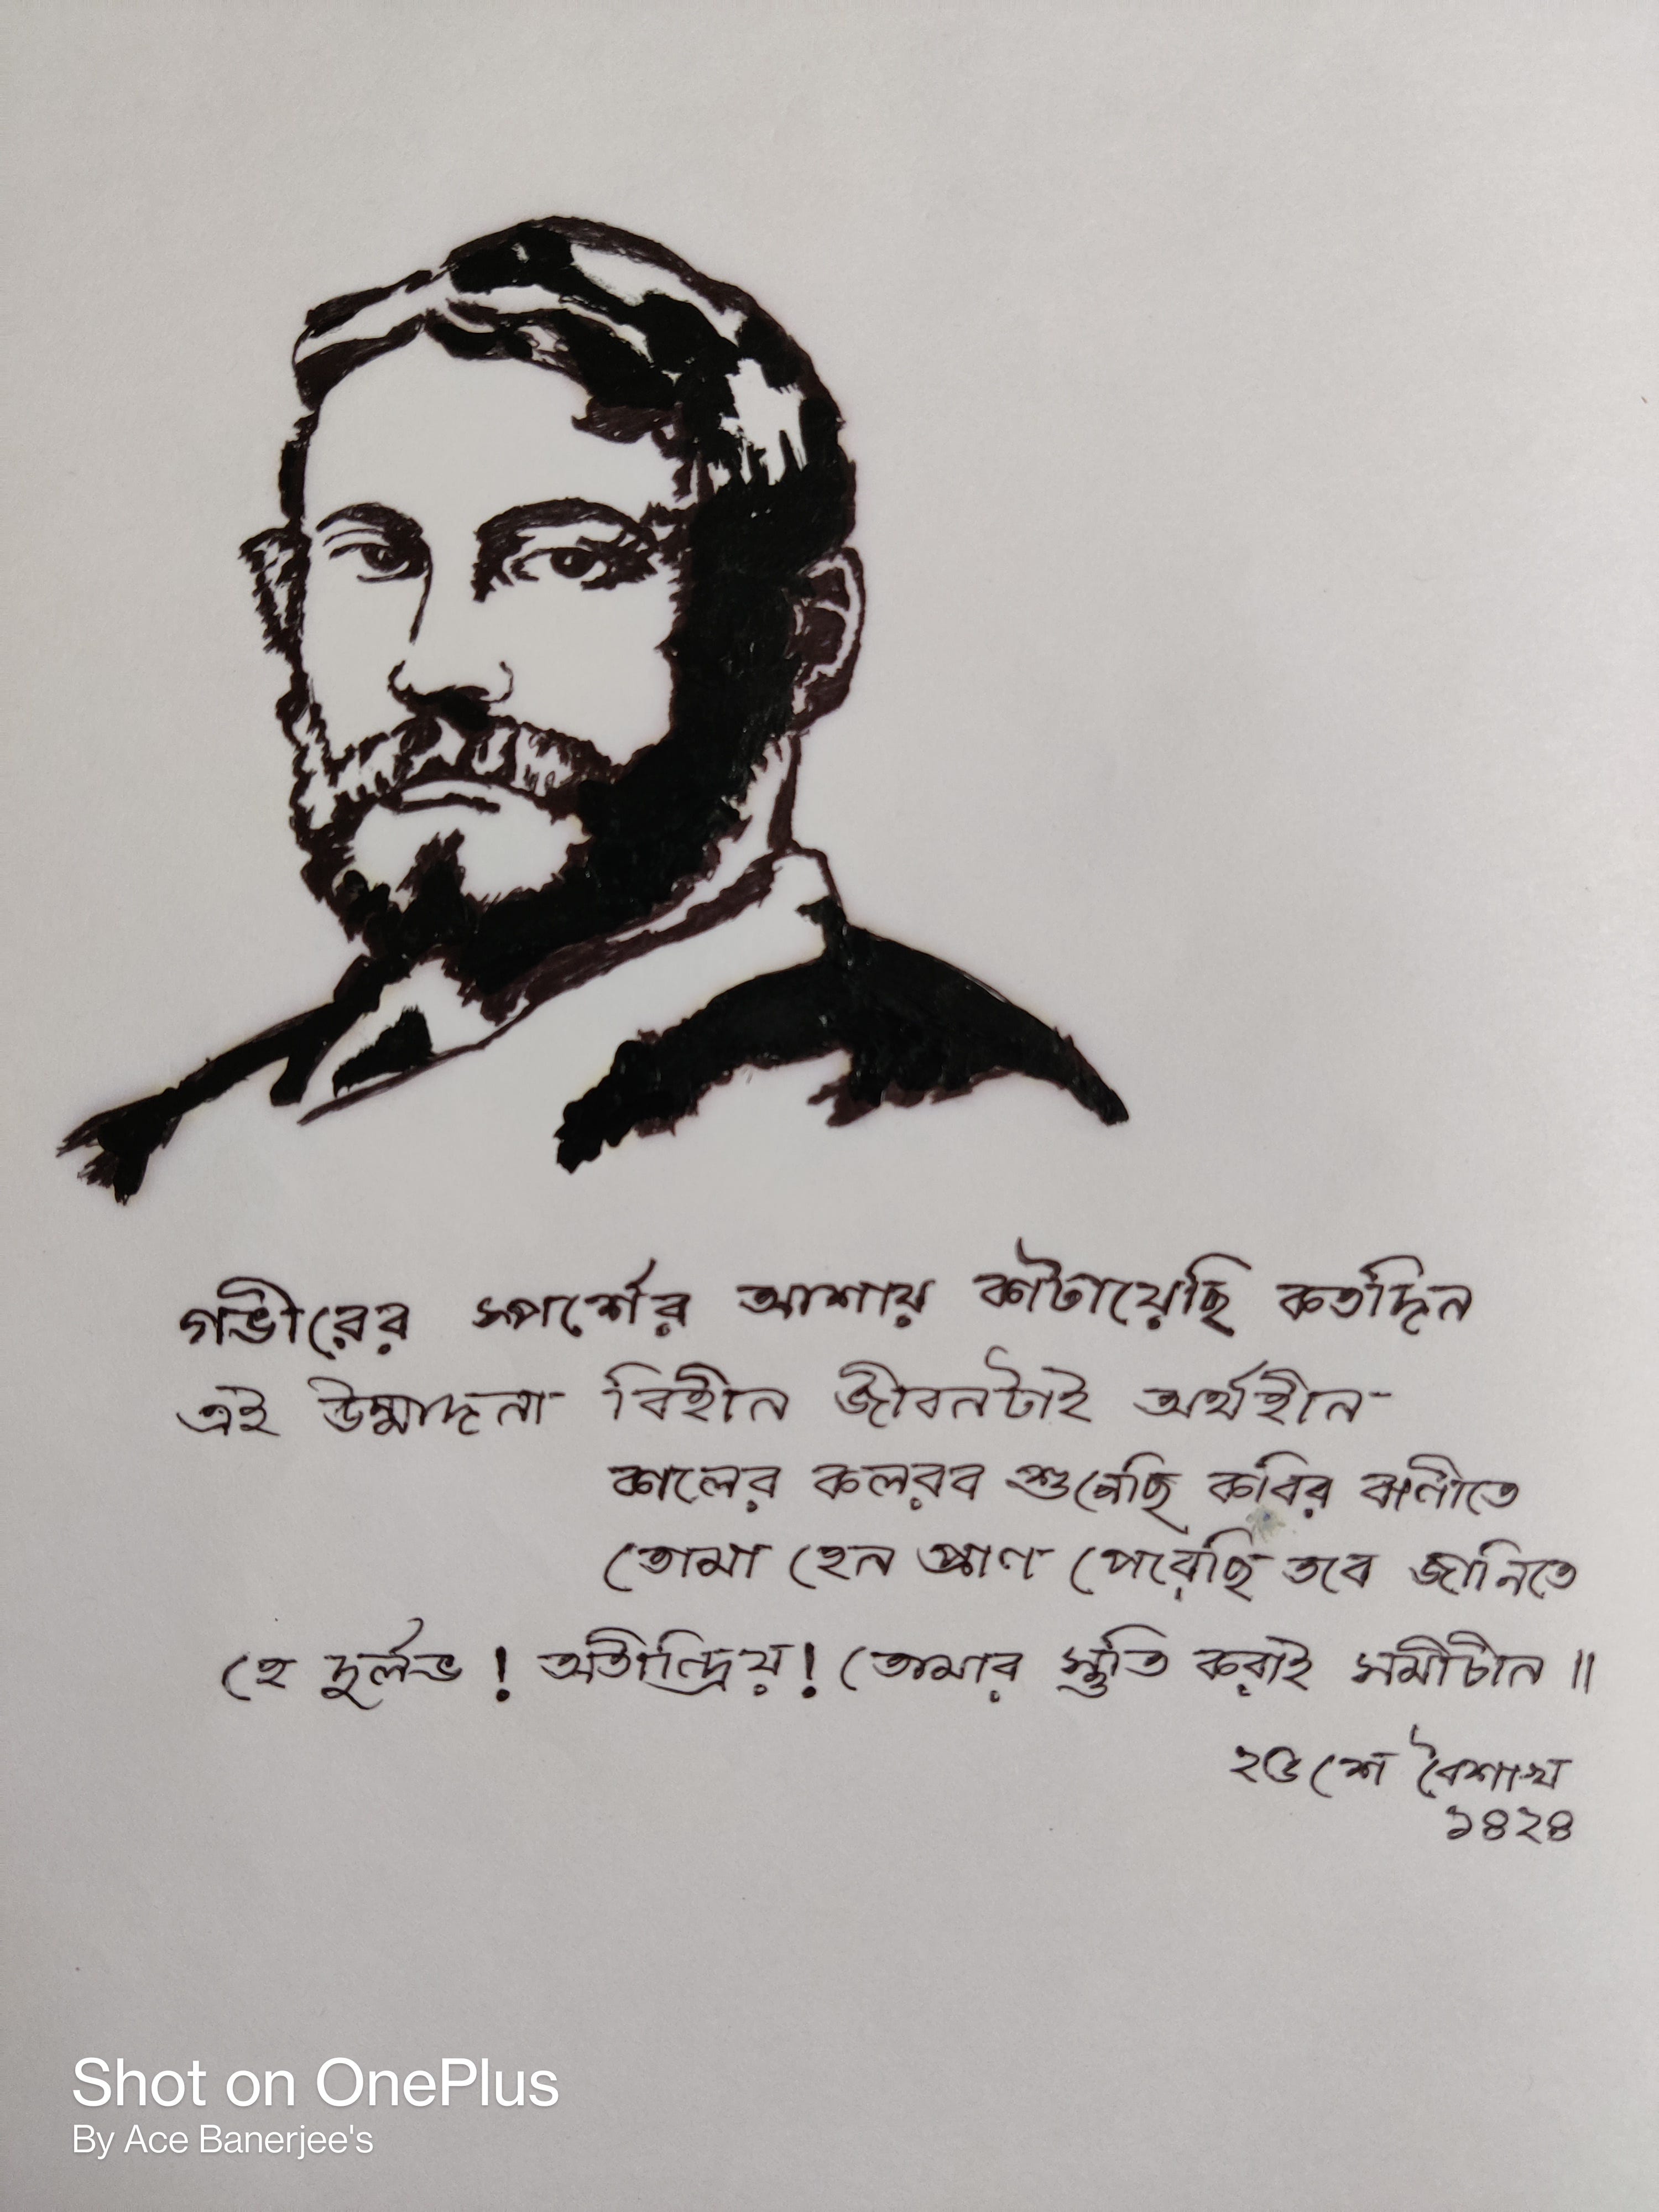 গভীরের স্পর্শের আশায় কাটায়েছি কতদিন
এই উন্মাদনা বিহীন জীবনটাই অর্থহীন
কালের কলরব শুনেছি কবির বাণীতে
তোমা হেন প্রাণ পেরেছি তবে জানিতে
হে দুর্লভ ! অতীন্দ্রিয় ! তোমার স্তুতি করাই সমীচীন ॥
২৫শে বৈশাখ
১৪২৪
Shot on OnePlus
By Ace Banerjee's